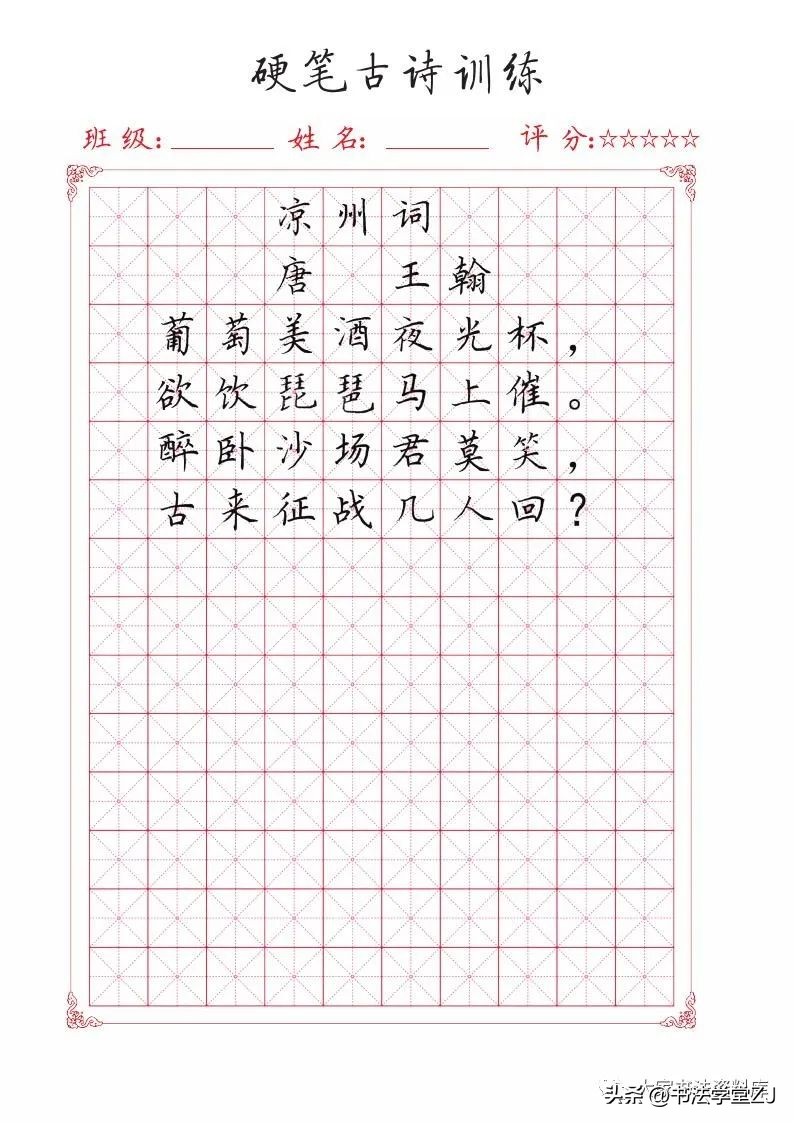 硬笔古诗训练
班级:________ 姓名:________ 评分:☆☆☆☆☆
凉州词
唐 王翰
葡萄美酒夜光杯，
欲饮琵琶马上催。
醉卧沙场君莫笑，
古来征战几人回？
大家书法资料库
头条@书法学堂ZJ